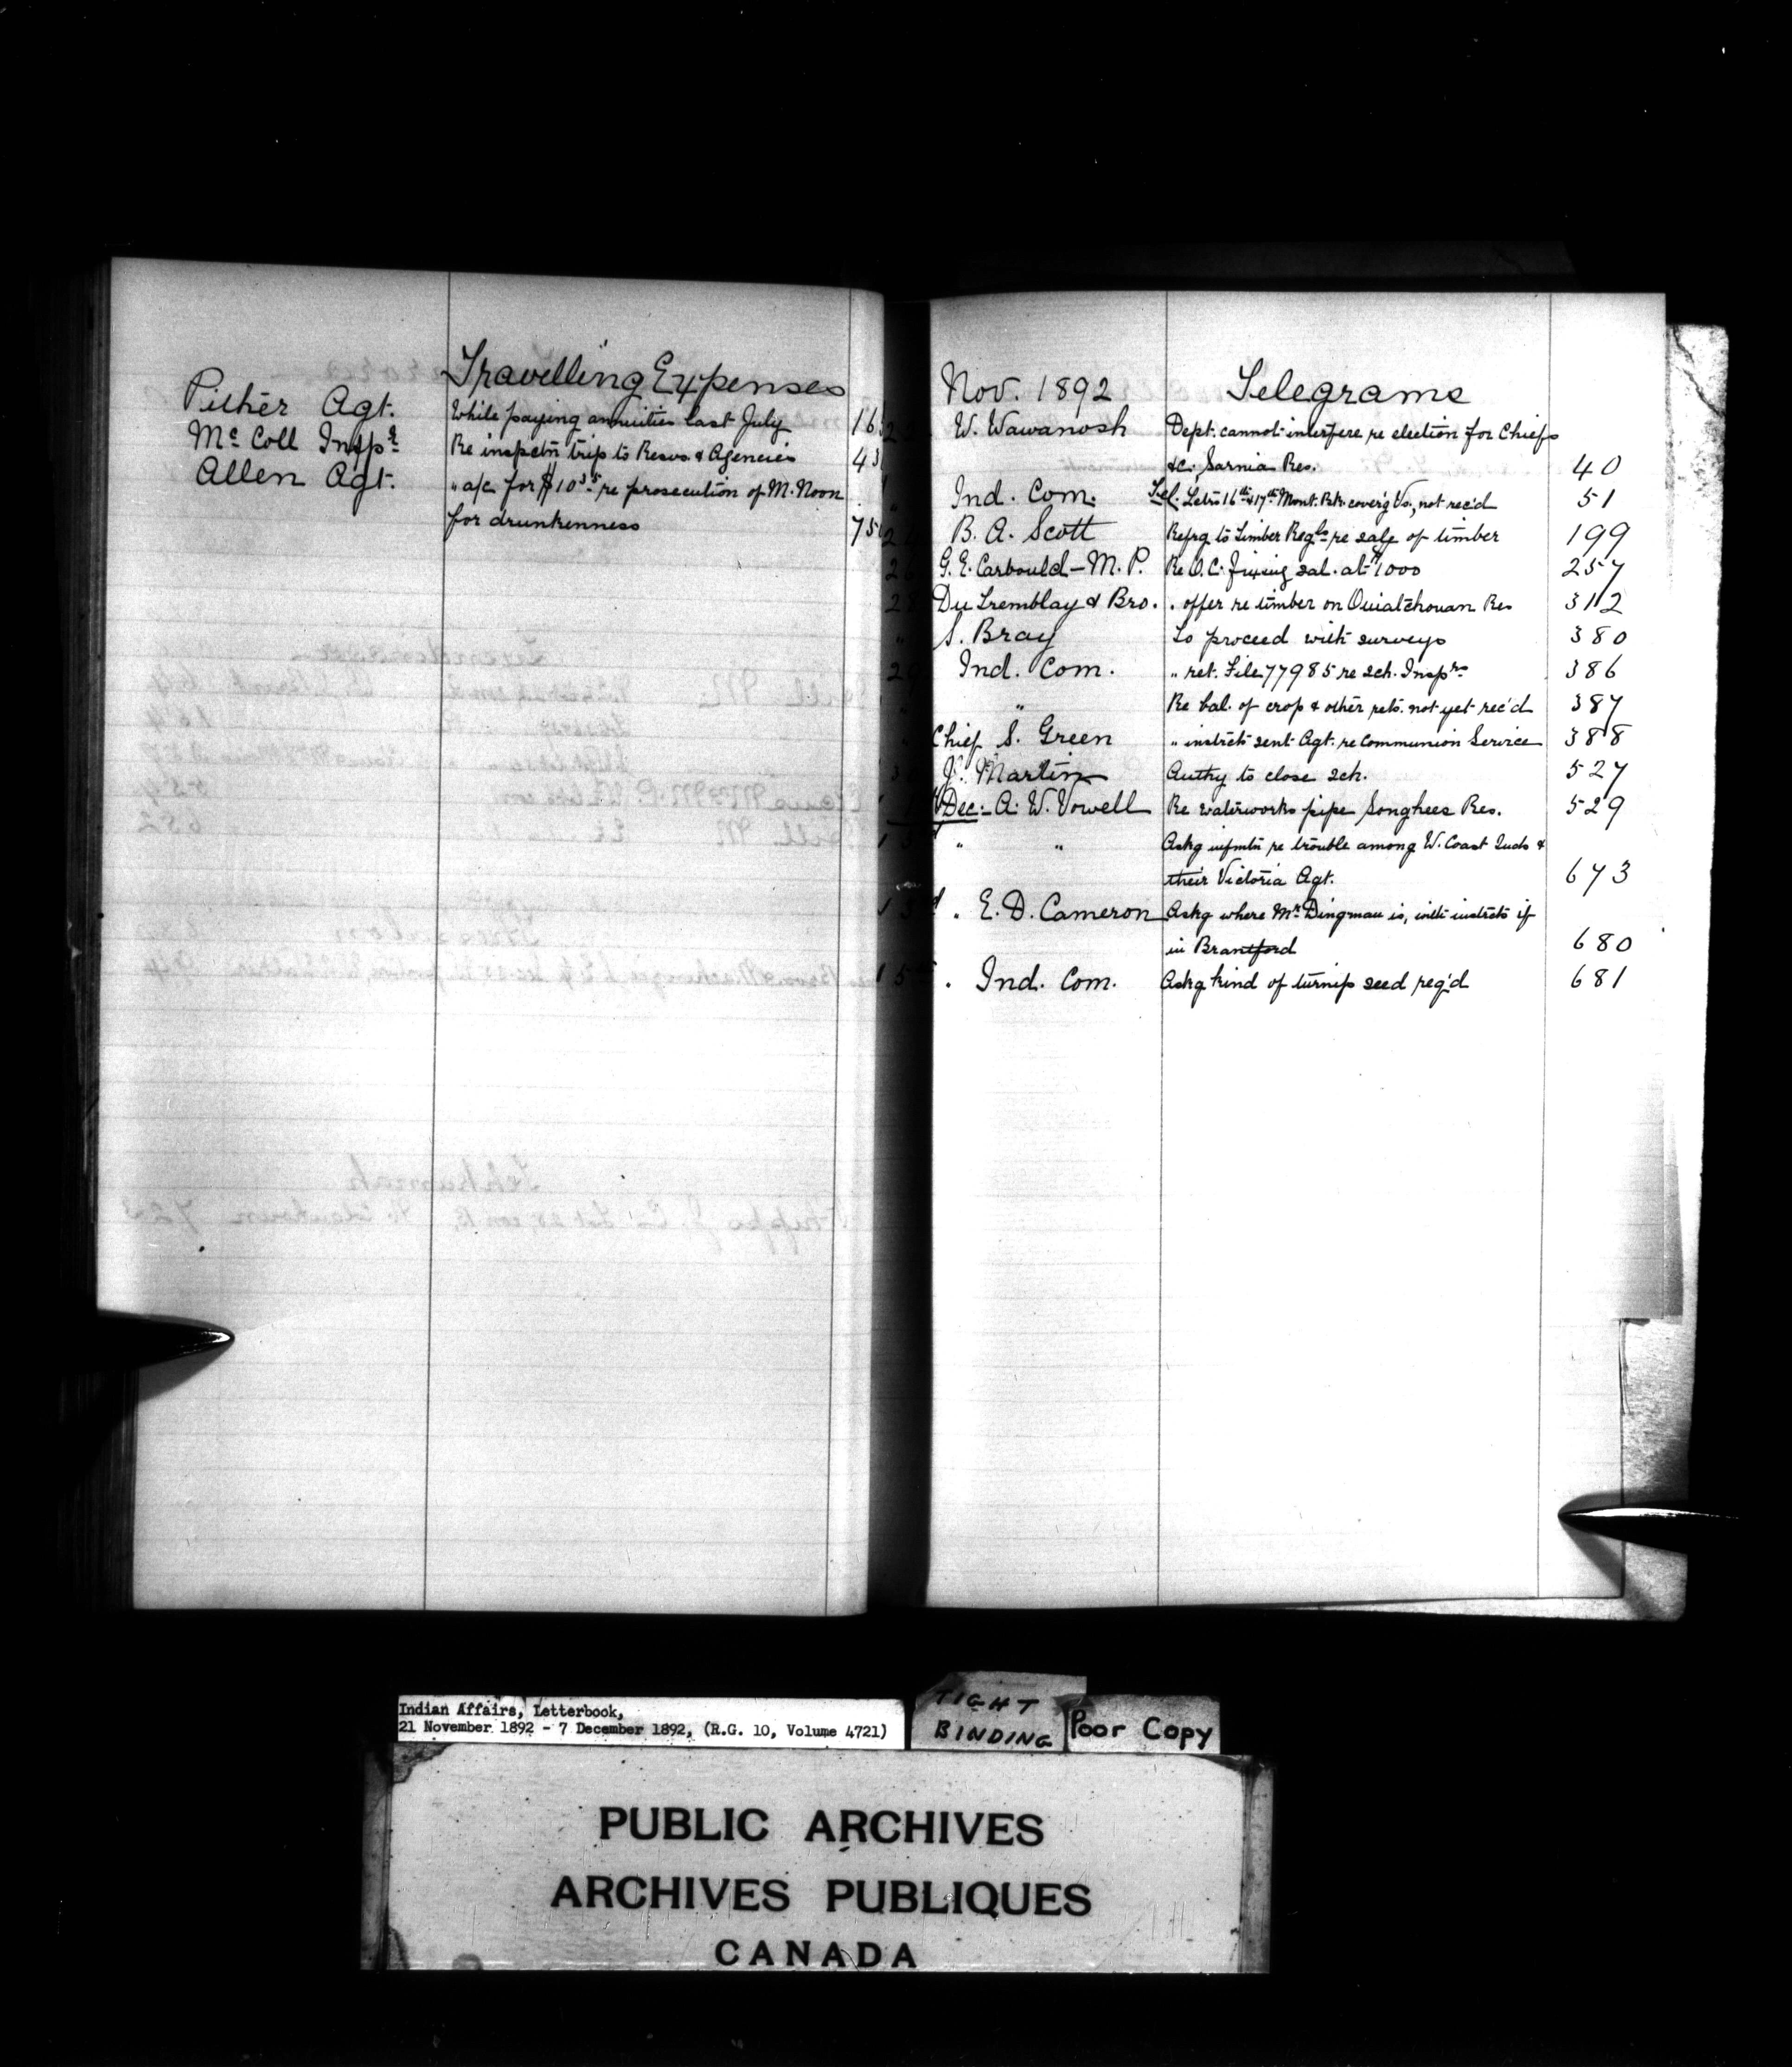 Travelling Expenses
Pither Agt. While paying annuities last July 16
Mc Coll Inspr Re inspctn trip to Resvs. & Agencies 43
Allen Agt. " a/c for $10 35 re prosecution of M. Noon
for drunkenness 75
Nov. 1892 Telegrams
W. Wawanosh Dept. cannot interfere re election for Chiefs
&c. Sarnia Res. 40
" Ind. Com. Tel. Letrs 16th & 17th Mont. Bk. cover'g Vs., not rec'd 51
2 B. A. Scott Refrg to Timber Regls re sale of timber 199
2 G. E. Corbould - M. P. Re O. C. fixing sal. at $1000 257
28 Du Tremblay & Bro. " offer re timber on Ouiatchouan Res 312
" S. Bray To proceed with surveys 380
29 Ind. Com. " ret. File 77985 re sch. Insprs 386
" Re bal. of crop & other rets. not yet rec'd 387
" Chief S. Green " instrcts sent Agt. re Communion Service 388
3 J. Martin Authy to close sch. 527
1 Dec: - A. W. Vowell Re waterworks pipe Songhees Res. 529
" " Askg infmtn re trouble among W. Coast Inds &
their Victoria Agt. 673
" E. D. Cameron Askg where Mr Dingman is, with instrcts if
in Brantford 680
5 " Ind. Com. Askg kind of turnip seed req'd 681
Indian Affairs, Letterbook,
21 November 1892 - 7 December 1892, (R.G. 10, Volume 4721)
TIGHT
BINDING
Poor Copy
PUBLIC ARCHIVES
ARCHIVES PUBLIQUES
CANADA